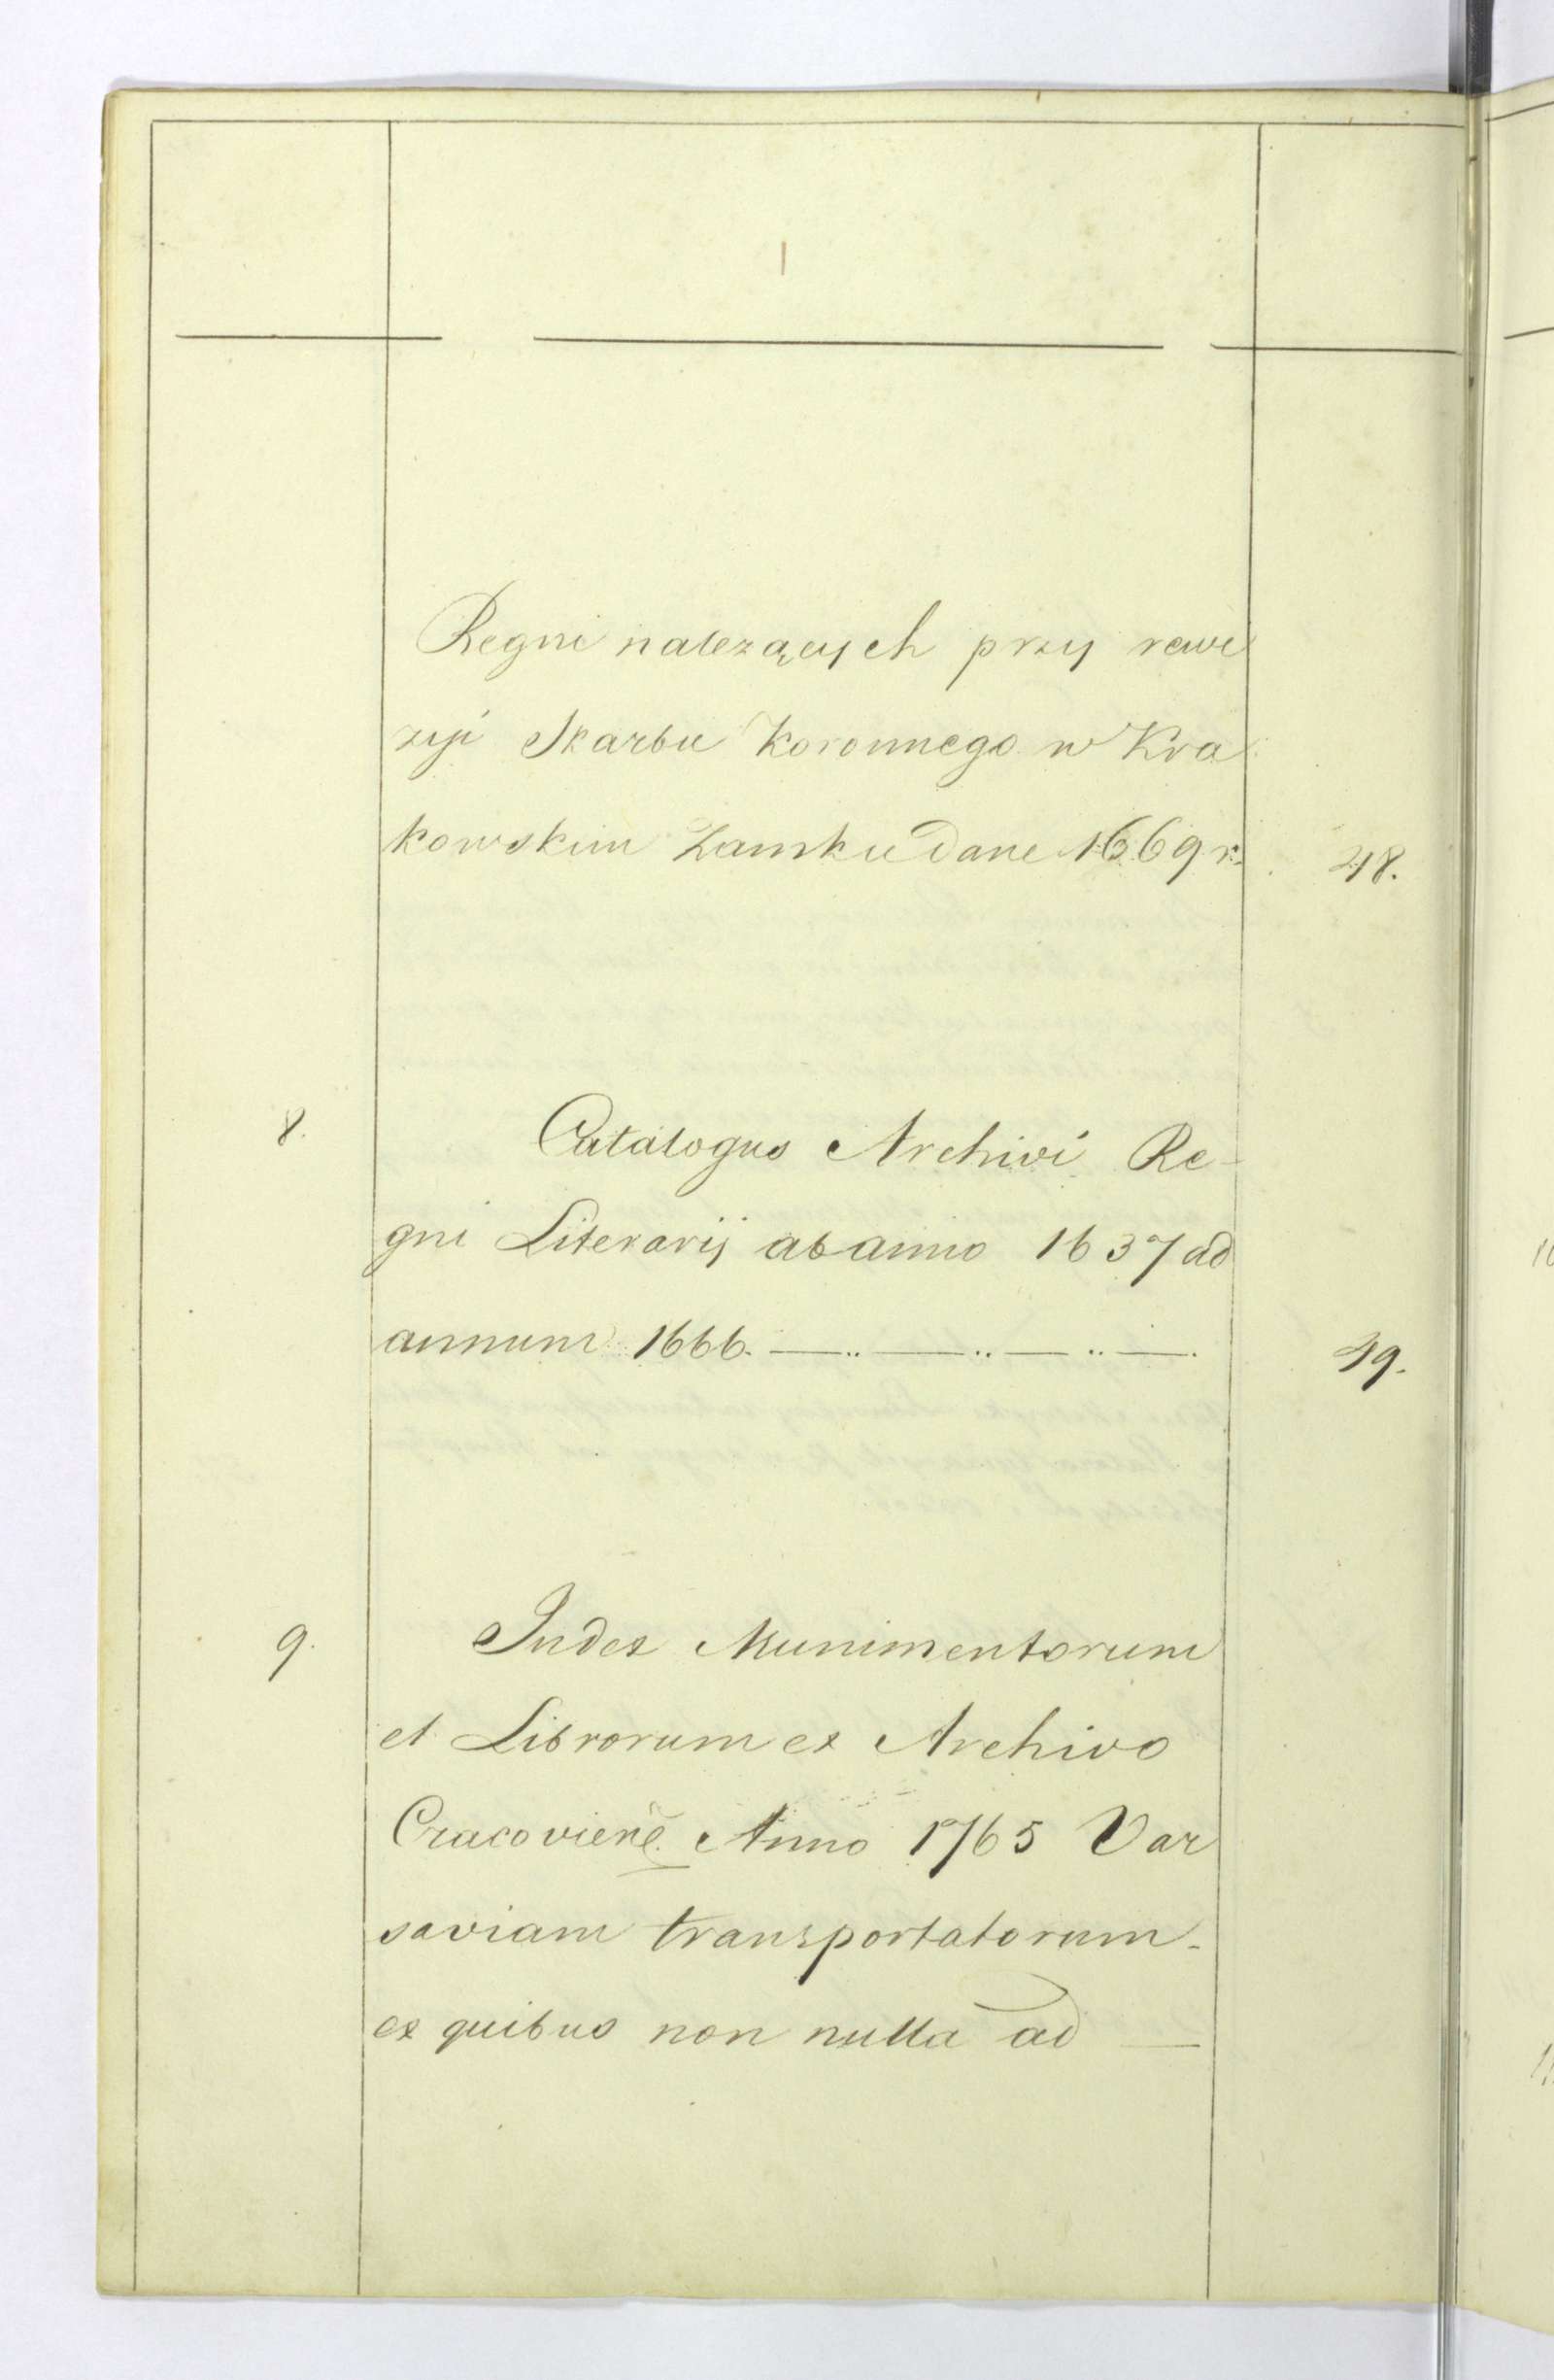 Regni należących przy rewi
zyi Skarbu Koronnego w Kra
kowskim Zamku dane 1669 r. 48.
8. Catalogus Archivi Re-
gni Literarij ab anno 1637 ad
annum 1666. 49.
9. Index Munimentorum
et Librorum ex Archivo
Cracovień. Anno 1765 Var
saviam transportatorum.
ex quibus non nulla ad —